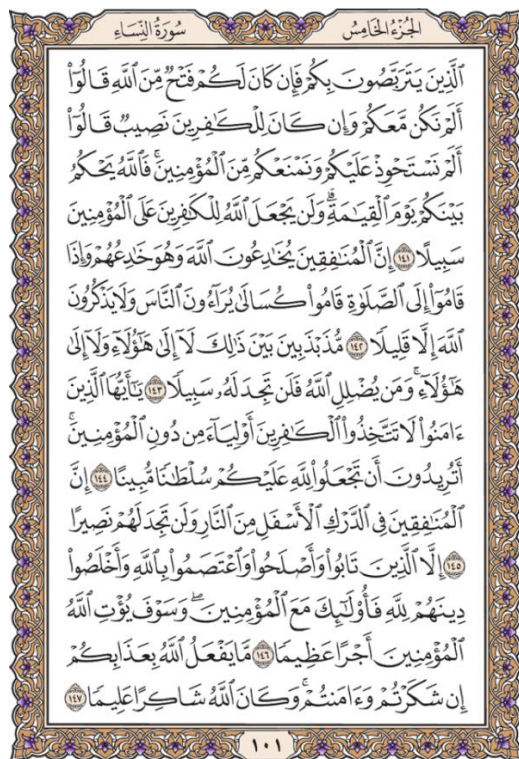 الجُزْءُ الخَامِسُ سُورَةُ النِّسَاءِ
ٱلَّذِينَ يَتَرَبَّصُونَ بِكُمْ فَإِن كَانَ لَكُمْ فَتْحٌ مِّنَ ٱللَّهِ قَالُوٓا۟
أَلَمْ نَكُن مَّعَكُمْ وَإِن كَانَ لِلْكَٰفِرِينَ نَصِيبٌ قَالُوٓا۟
أَلَمْ نَسْتَحْوِذْ عَلَيْكُمْ وَنَمْنَعْكُم مِّنَ ٱلْمُؤْمِنِينَ ۚ فَٱللَّهُ يَحْكُمُ
بَيْنَكُمْ يَوْمَ ٱلْقِيَٰمَةِ ۗ وَلَن يَجْعَلَ ٱللَّهُ لِلْكَٰفِرِينَ عَلَى ٱلْمُؤْمِنِينَ
سَبِيلًا ١٤١ إِنَّ ٱلْمُنَٰفِقِينَ يُخَٰدِعُونَ ٱللَّهَ وَهُوَ خَٰدِعُهُمْ وَإِذَا
قَامُوٓا۟ إِلَى ٱلصَّلَوٰةِ قَامُوا۟ كُسَالَىٰ يُرَآءُونَ ٱلنَّاسَ وَلَا يَذْكُرُونَ
ٱللَّهَ إِلَّا قَلِيلًا ١٤٢ مُّذَبْذَبِينَ بَيْنَ ذَٰلِكَ لَآ إِلَىٰ هَٰٓؤُلَآءِ وَلَآ إِلَىٰ
هَٰٓؤُلَآءِ ۚ وَمَن يُضْلِلِ ٱللَّهُ فَلَن تَجِدَ لَهُۥ سَبِيلًا ١٤٣ يَٰٓأَيُّهَا ٱلَّذِينَ
ءَامَنُوا۟ لَا تَتَّخِذُوا۟ ٱلْكَٰفِرِينَ أَوْلِيَآءَ مِن دُونِ ٱلْمُؤْمِنِينَ ۚ
أَتُرِيدُونَ أَن تَجْعَلُوا۟ لِلَّهِ عَلَيْكُمْ سُلْطَٰنًا مُّبِينًا ١٤٤ إِنَّ
ٱلْمُنَٰفِقِينَ فِى ٱلدَّرْكِ ٱلْأَسْفَلِ مِنَ ٱلنَّارِ وَلَن تَجِدَ لَهُمْ نَصِيرًا
١٤٥ إِلَّا ٱلَّذِينَ تَابُوا۟ وَأَصْلَحُوا۟ وَٱعْتَصَمُوا۟ بِٱللَّهِ وَأَخْلَصُوا۟
دِينَهُمْ لِلَّهِ فَأُو۟لَٰٓئِكَ مَعَ ٱلْمُؤْمِنِينَ ۖ وَسَوْفَ يُؤْتِ ٱللَّهُ
ٱلْمُؤْمِنِينَ أَجْرًا عَظِيمًا ١٤٦ مَّا يَفْعَلُ ٱللَّهُ بِعَذَابِكُمْ
إِن شَكَرْتُمْ وَءَامَنتُمْ ۚ وَكَانَ ٱللَّهُ شَاكِرًا عَلِيمًا ١٤٧
١٠١